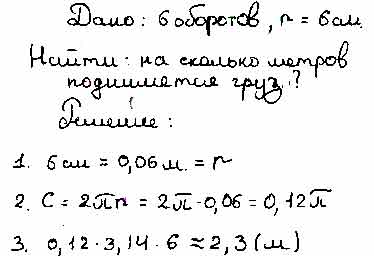 Дано: 6 оборотов, r = 6 см.
Найти: на сколько метров
поднимется груз?
Решение:
1. 6 см = 0,06 м. = r
2. C = 2πr = 2π·0,06 = 0,12π
3. 0,12·3,14·6 ≈ 2,3 (м)